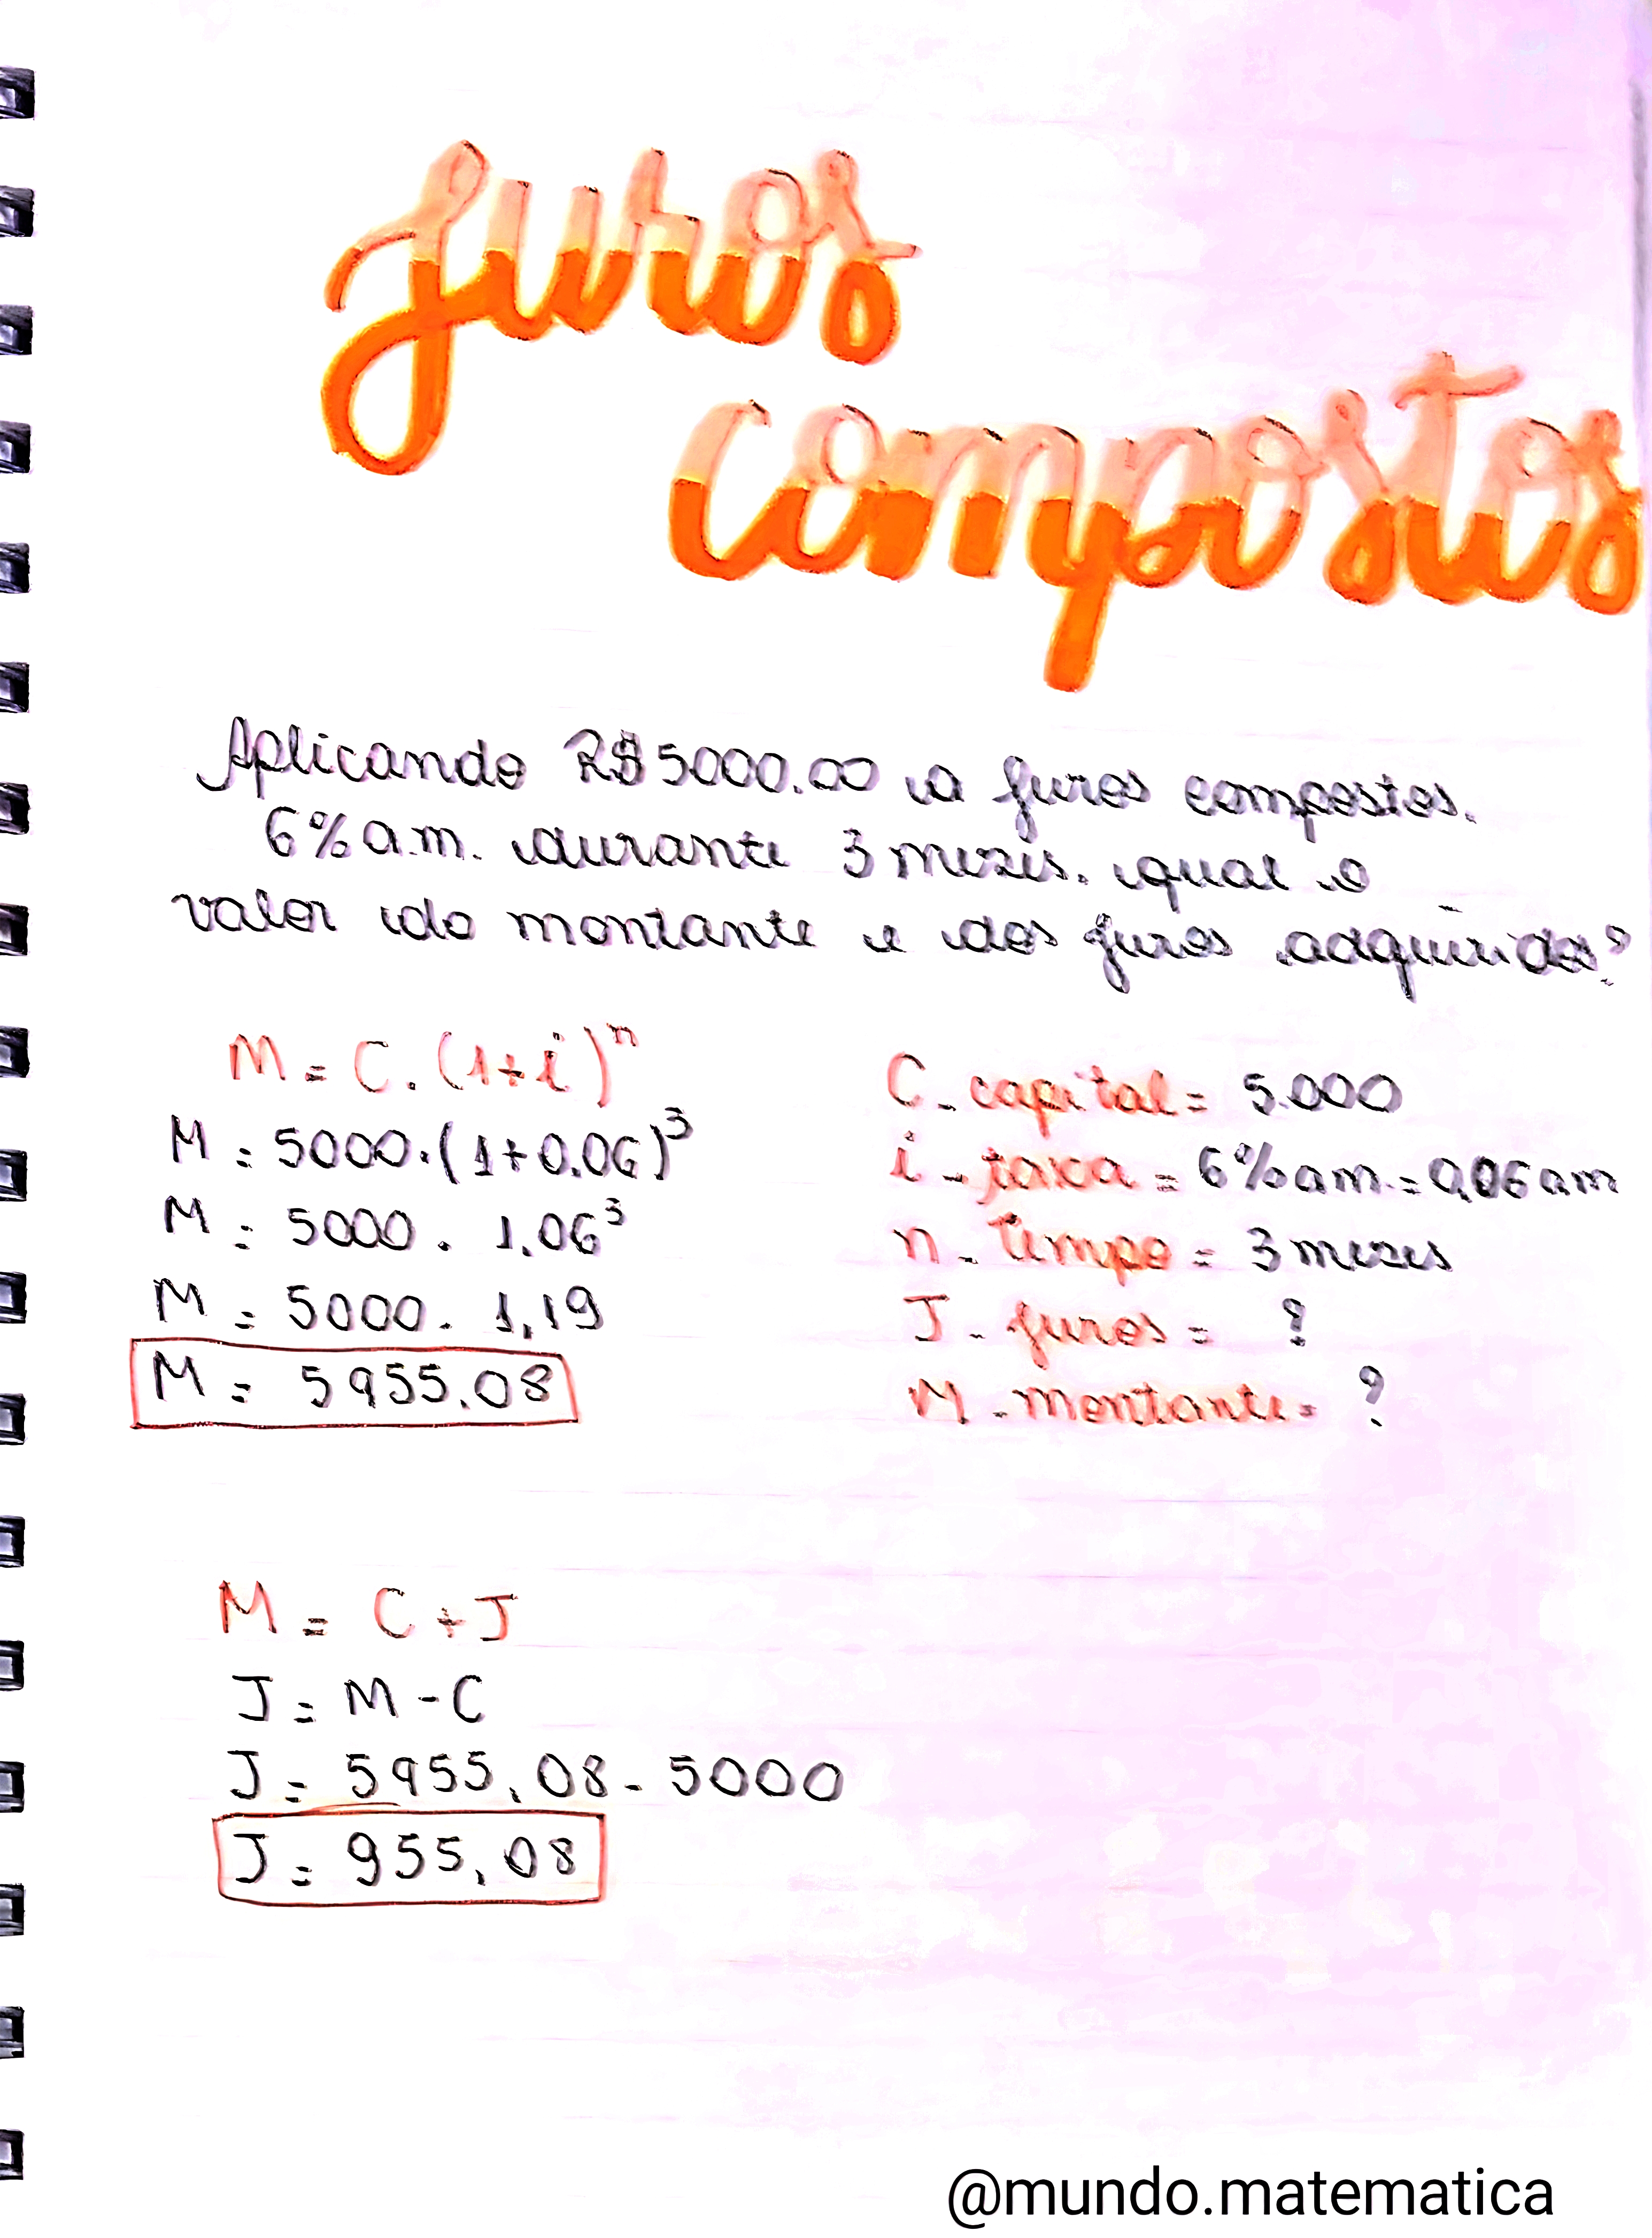 Juros
compostos
Aplicando R$5000,00 a juros compostos,
6% a.m. durante 3 mezes, qual o
valor do montante e dos juros adquiridos?
M = C . (1+i)ⁿ
M = 5000.(1+0,06)³
M = 5000 . 1,06³
M = 5000 . 1,19
M = 5955,08
C - capital = 5.000
i - taxa = 6% am. = 0,06 am
n - tempo = 3 mezes
J - juros = ?
M - montante = ?
M = C + J
J = M - C
J = 5955,08 - 5000
J = 955,08
@mundo.matematica